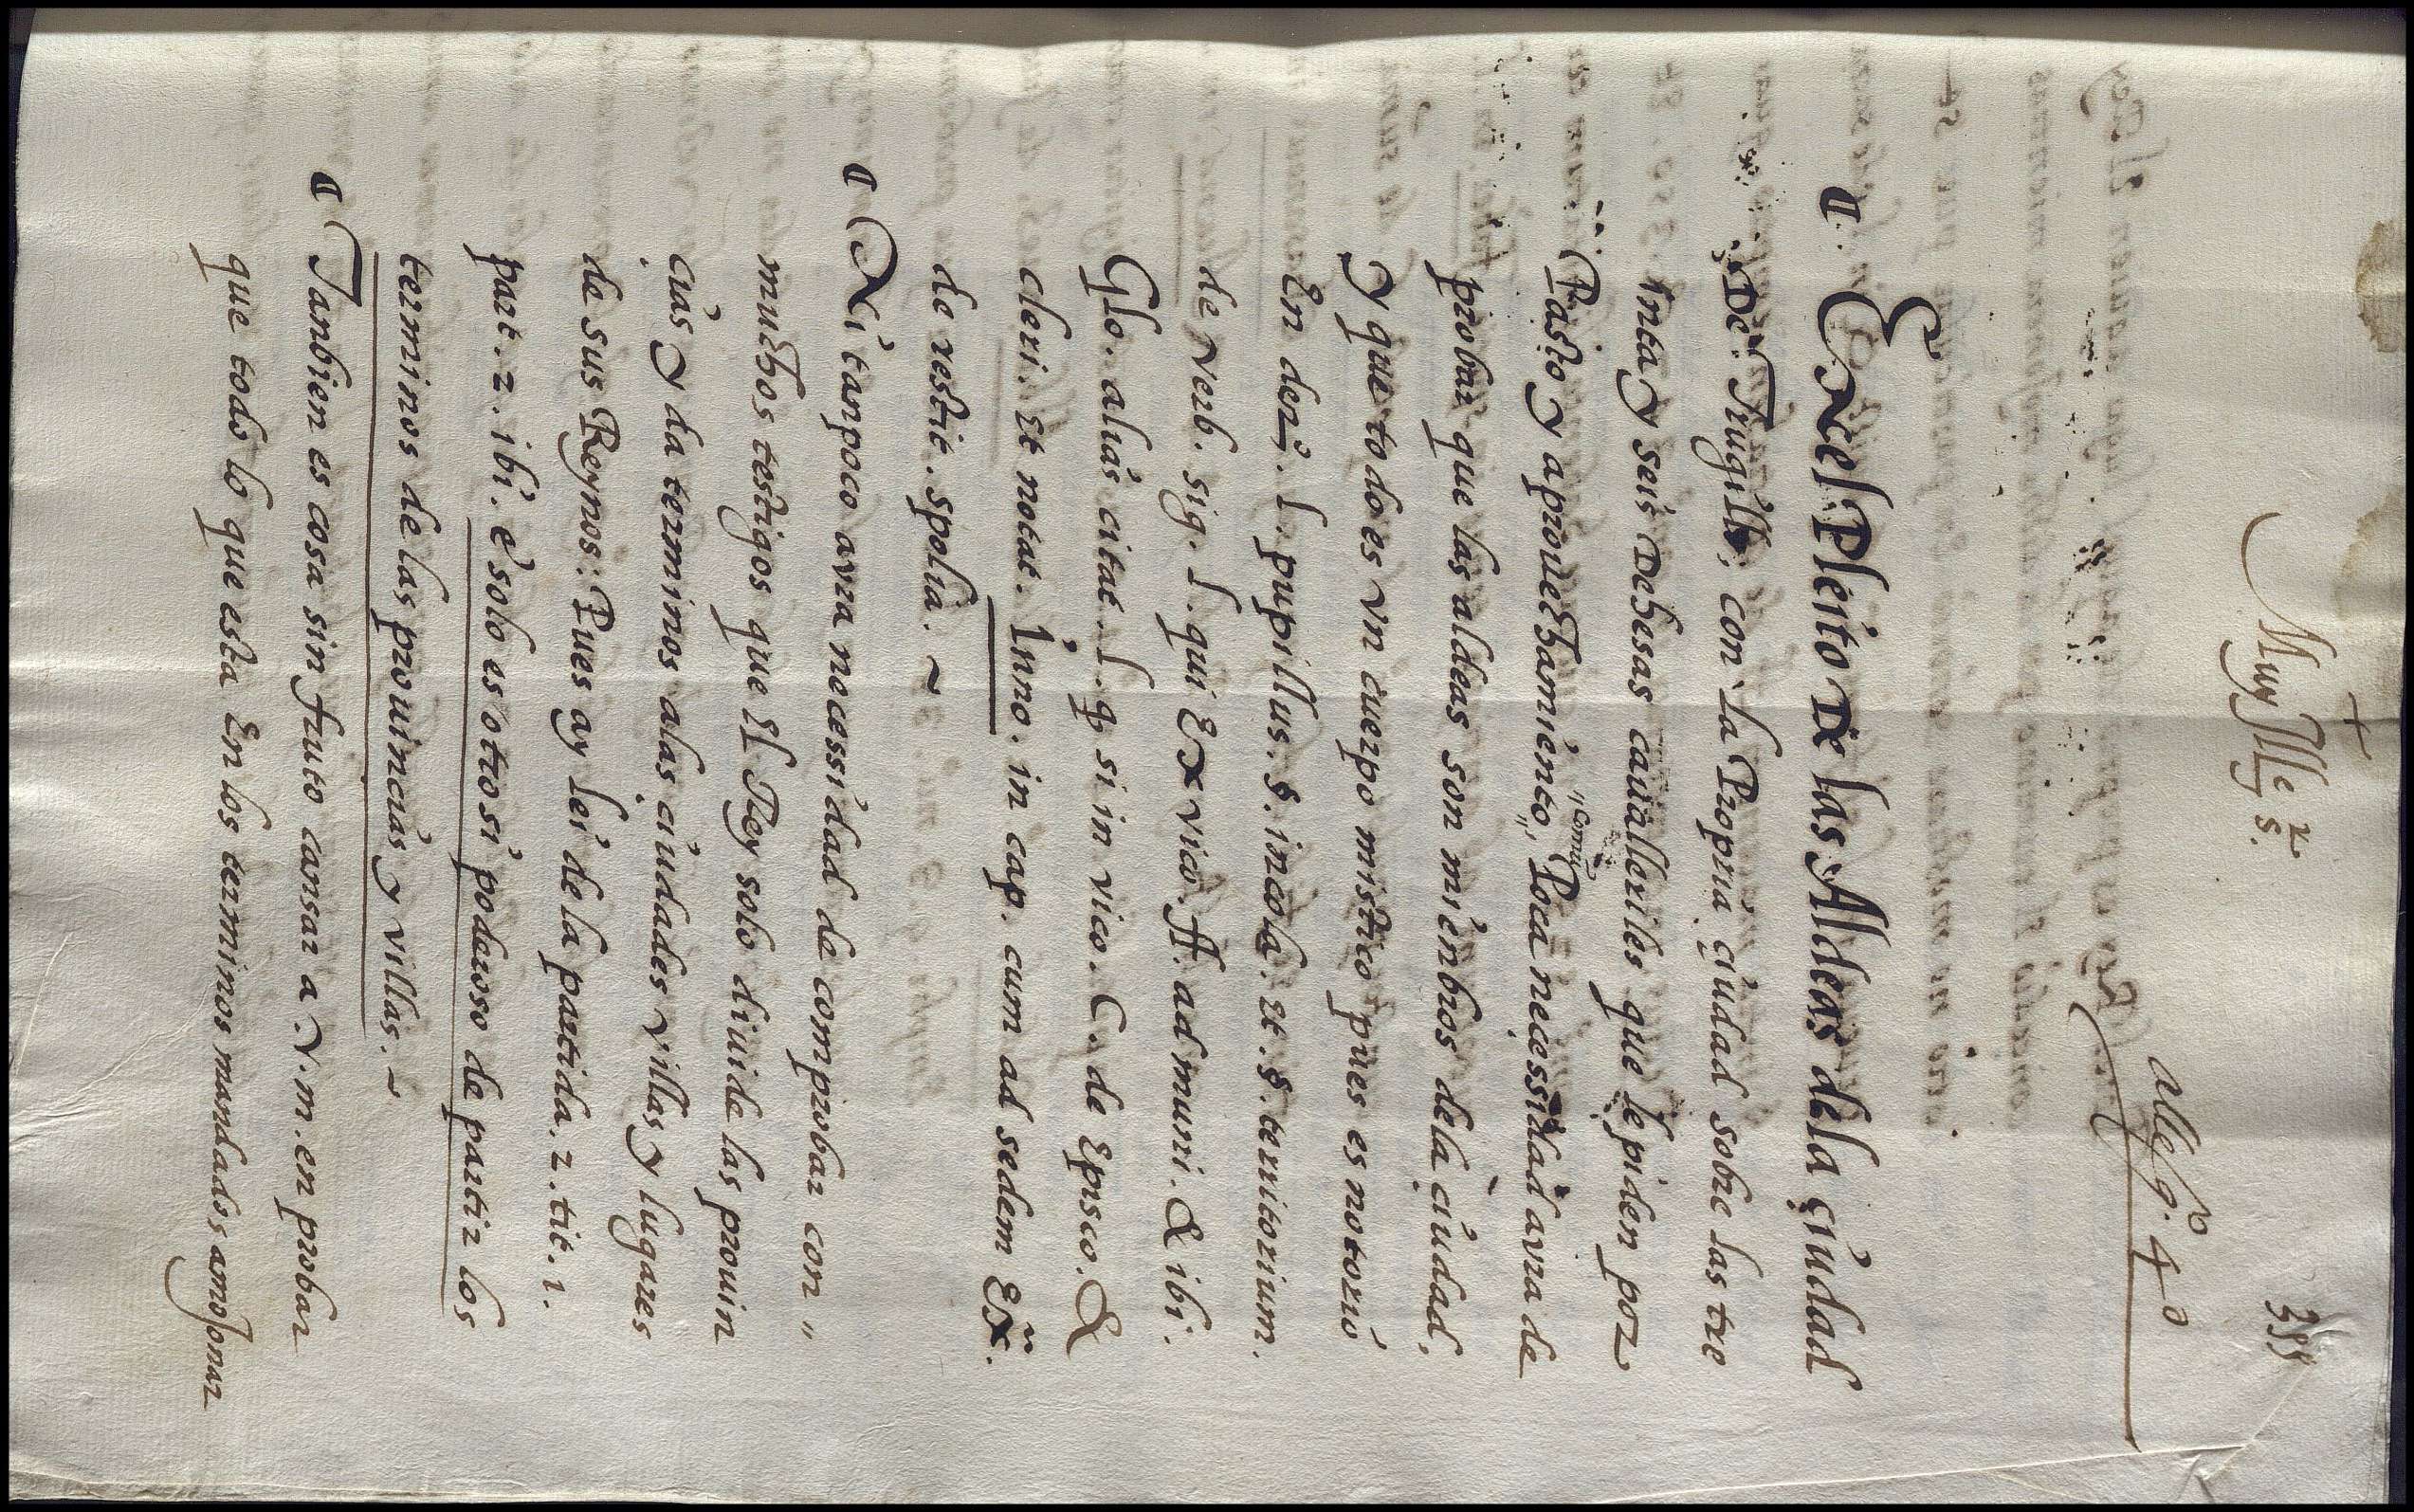 +
Muy Illes.
355
alleg. 4º
En el Pleito De las Aldeas de la çiudad
De Trugillo, con la Propria çiudad sobre las tre
inta y seis Dehesas caualleriles que le piden por
Pasto y aprouechamiento, "Comun" Poca neçessidad avra de
probar que las aldeas son mienbros de la çiudad,
y que todo es vn cuerpo mistico pues es notorio
En derº. l. pupillus. §. incola. et. §. territorium.
de verb. sig. l. qui Ex vico. ff. ad muni. & ibi.
Glo. alias citat. l. q si in vico. C. de Episco. &
cleri. et notat. Inno. in cap. cum ad sedem Ex̃.
de restit. spolia. ~
Ni tanpoco avra necessidad de comprobar con"
muchos testigos que El Rey solo diuide las prouin
cias y da terminos a las çiudades villas y lugares
de sus Reynos: Pues ay lei de la partida. 2. tit. 1.
part. 2. ibi. e solo es otrosi poderoso de partir los
terminos de las prouincias y villas. ~
Tanbien es cosa sin fruto cansar a v. m. en probar
que todo lo que esta En los terminos mandados amojonar